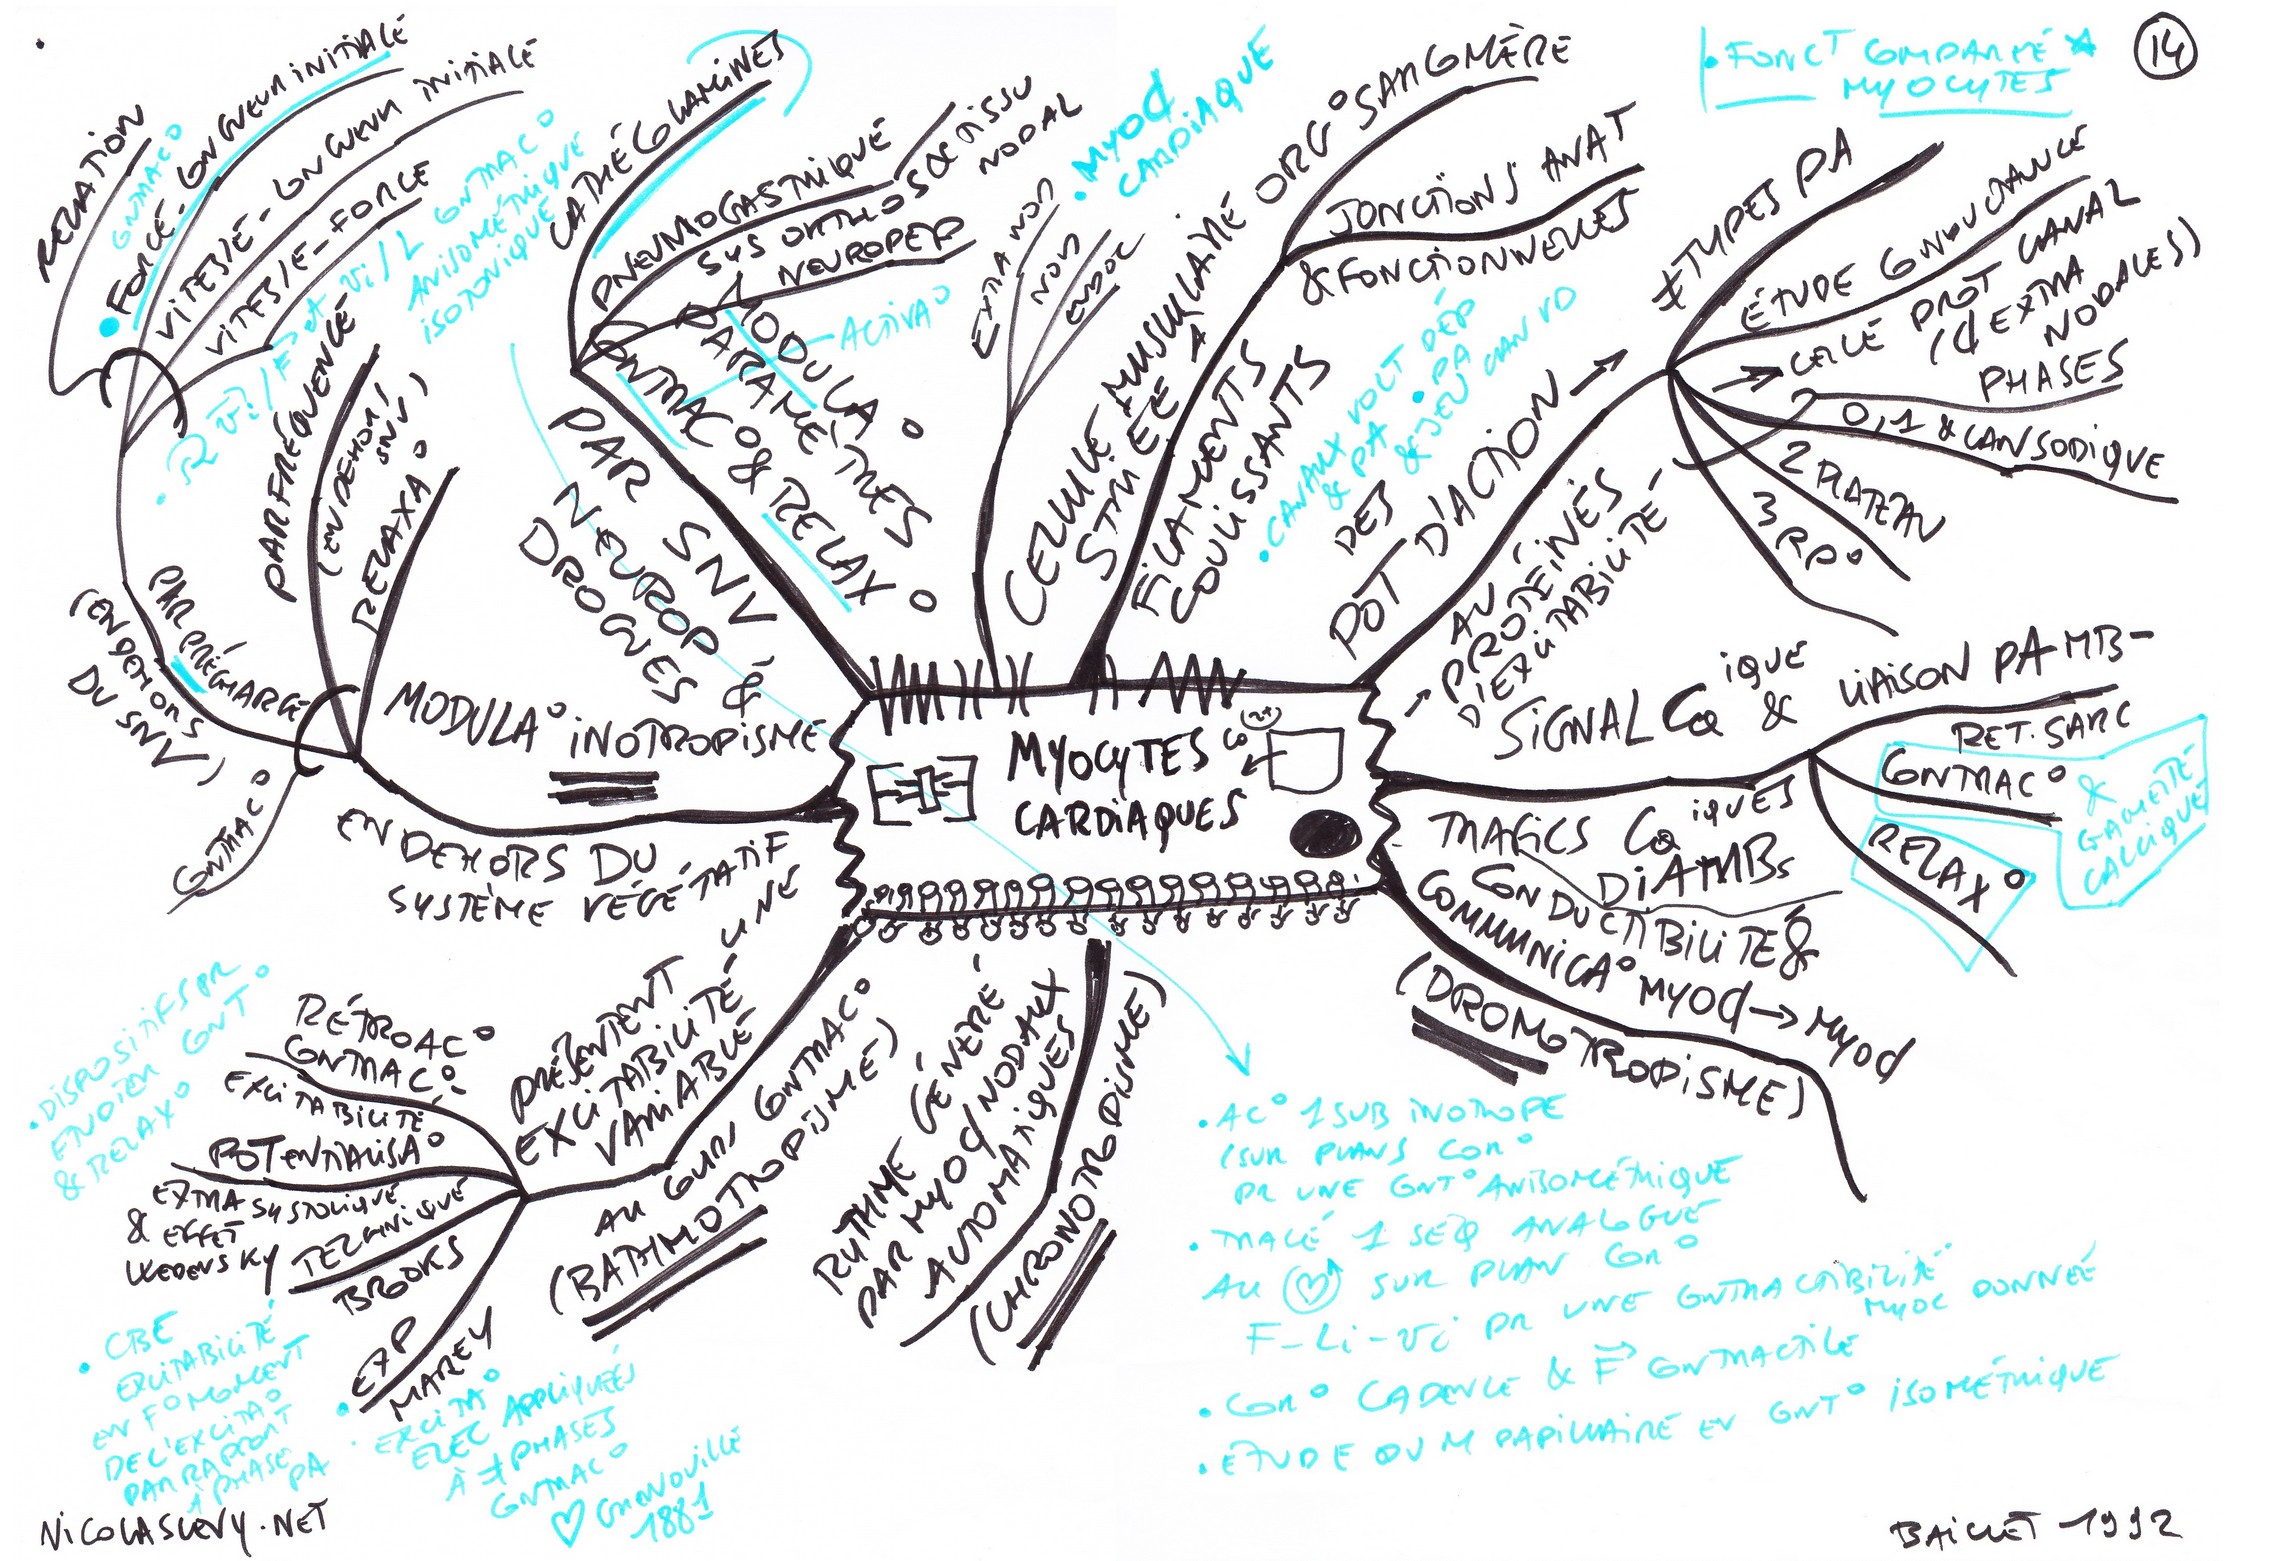 • FONCT COMPARÉE
MYOCYTES
14
MYOCYTES
CARDIAQUES
Ca (2+)
RELATION
CONTRAC°
• FORCE-LONGUEUR INITIALE
VITESSE-LONGUEUR INITIALE
VITESSE-FORCE
CONTRAC°
ANISOMÉTRIQUE
ISOTONIQUE
PAR FRÉQUENCE
(EN DEHORS
SNV)
RELAXA°
PAR PRÉCHARGE
(EN DEHORS
DU SNV)
CONTRAC°
MODULA° INOTROPISME
EN DEHORS DU
SYSTÈME VÉGÉTATIF
CATHÉCOLAMINES
PNEUMOGASTRIQUE
SYS ORTHOS & TISSU
NODAL
NEUROPEP
MODULA°
PARAMÈTRES
ACTIVA°
CONTRAC° & RELAX°
PAR SNV,
NEUROP &
DROGUES
• MYOC
CARDIAQUE
EXTRA NOD
NOD
ENDOC
CELLULE MUSCULAIRE
STRIÉE A
ORG° SARCOMÈRE
JONCTIONS ANAT
& FONCTIONNELLES
FILAMENTS
COULISSANTS
• CANAUX VOLT DÉP
& PA • PA
& JEU CAN VD
POT D'ACTION →
DES
POT D'ACTION
AU
→ PROTÉINES
D'EXCITABILITÉ
≠ TYPES PA
ÉTUDE CONDUCTANCE
→ CELLE PROT CANAL
(C EXTRA
NODALES)
PHASES
0,1 & CAN SODIQUE
2 PLATEAU
3 RP°
SIGNAL Ca IQUE & LIAISON PA MB-
RET. SARC
CONTRAC°
RELAX°
& GAMETTE
CALCIQUE
TRAFICS Ca IQUES
DIAMBS
CONDUCTIBILITÉ &
COMMUNICA° MYOC → MYOC
(DROMOTROPISME)
RYTHME GÉNÉRÉ
PAR MYOC NODAUX
AUTOMATIQUES
(CHRONOTROPISME)
PRÉSENTENT UNE
EXCITABILITÉ
VARIABLE
AU COURS CONTRAC°
(BATHMOTROPISME)
RÉTROAC°
CONTRAC°-
EXCITABILITÉ
POTENTIALISA°
EXTRASYSTOLIQUE
& EFFET
WEDENSKY
TECHNIQUE
BROOKS
EXP
MAREY
• DISPOSITIFS PR
ÉTUDIER CONT°
& RELAX°
• CBE
EXCITABILITÉ
EN F° MOMENT
DE L'EXCITA°
PAR RAPPORT
À PHASE PA
• EXCITA°
ELEC APPLIQUÉES
À ≠ PHASES
CONTRAC°
♡ GRENOUILLE
1881
• AC° 1 SUB INOTROPE
(SUR PLANS COR°
PR UNE CONT° ANISOMÉTRIQUE
• TRACÉ 1 SEQ ANALOGUE
AU ♡ SUR PLAN COR°
F-Li-Vi PR UNE CONTRACTIBILITÉ
MYOC DONNÉE
• COR° CADENCE & F CONTRACTILE
• ÉTUDE DU M PAPILLAIRE EN CONT° ISOMÉTRIQUE
NICOLASLEVY.NET
BAILLET 1992